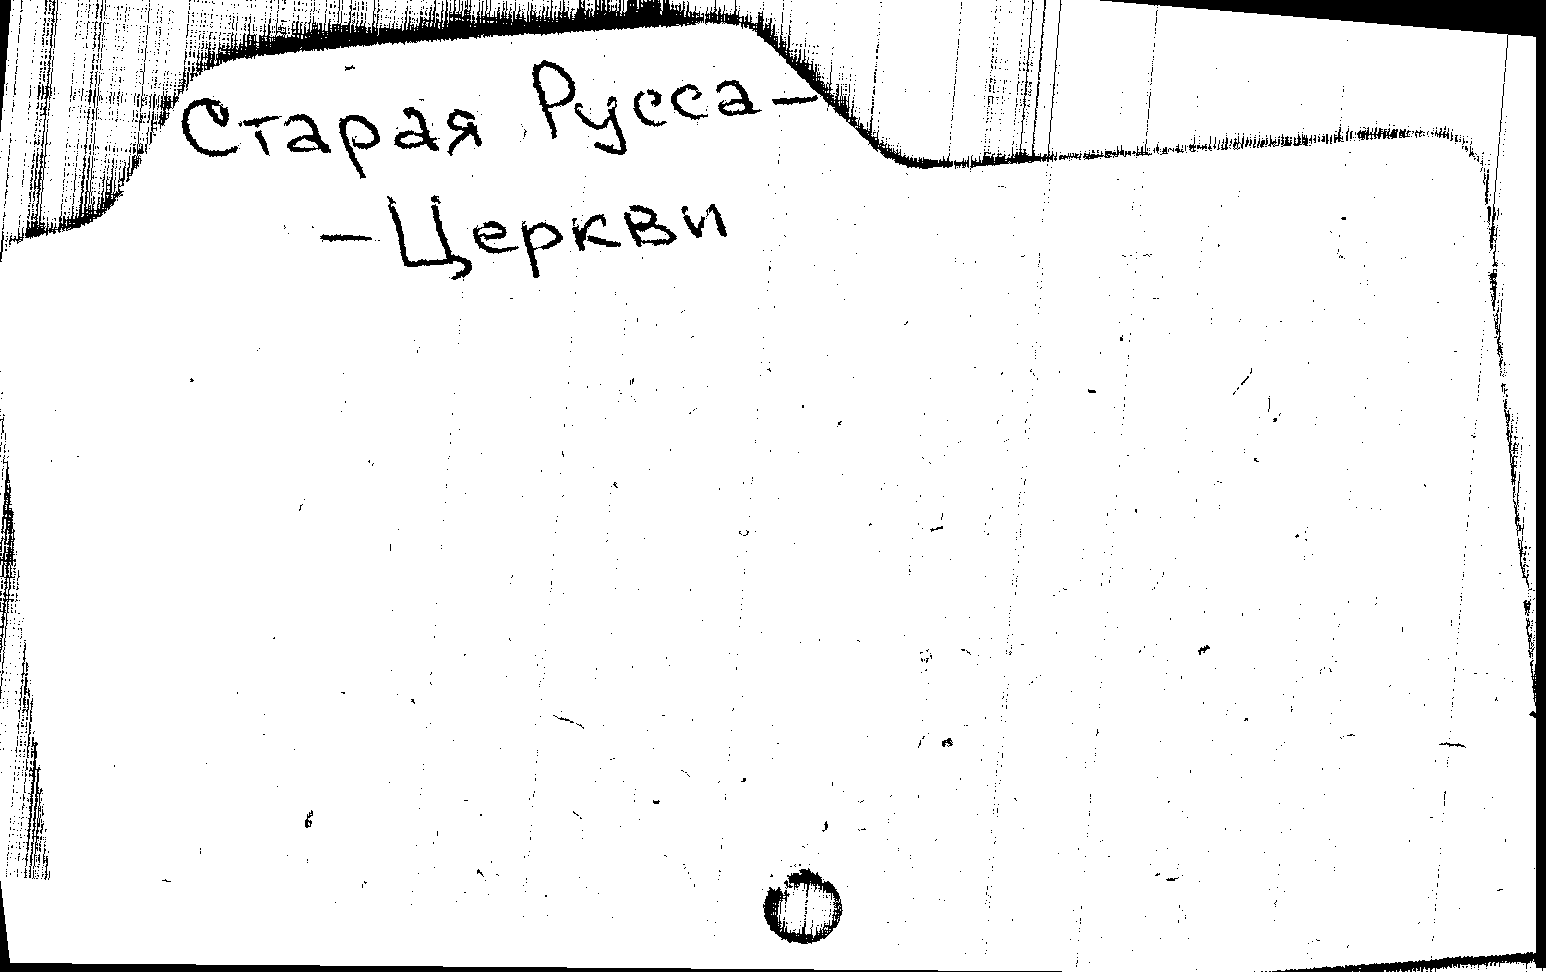 Старая Русса -
- Церкви